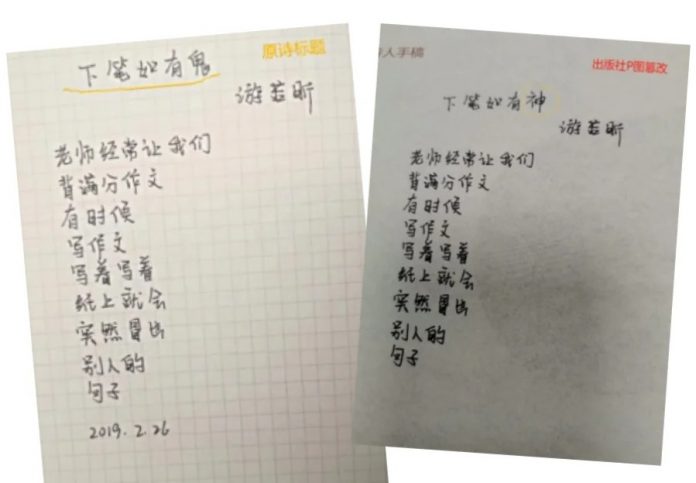 原诗标题
下笔如有鬼
游若昕
老师经常让我们
背满分作文
有时候
写作文
写着写着
纸上就会
突然冒出
别人的
句子
2019.2.26
诗人手稿
出版社P图篡改
下笔如有神
游若昕
老师经常让我们
背满分作文
有时候
写作文
写着写着
纸上就会
突然冒出
别人的
句子